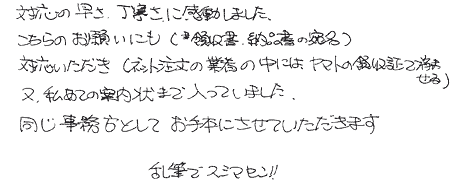 対応の早さ、丁寧さに感動しました、
こちらのお願いにも(領収書、納品書の宛名)
対応いただき(ネット注文の業者の中にはヤマトの領収証で済ませる)
又、私めての案内状まで入っていました、
同じ事務方として お手本にさせていただきます
乱筆でスミマセン!!